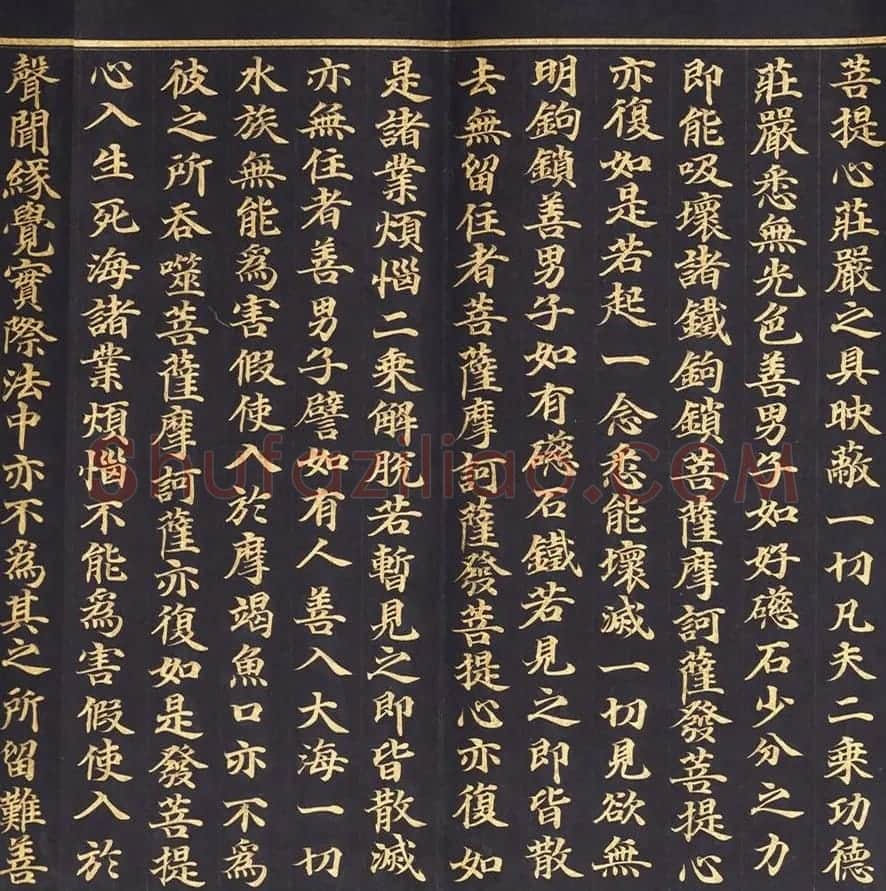 菩提心莊嚴之具映蔽一切凡夫二乘功德
莊嚴悉無光色善男子如好礠石少分之力
即能吸壞諸鐵鉤鎖菩薩摩訶薩發菩提心
亦復如是若起一念悉能壞滅一切見欲無
明鉤鎖善男子如有礠石鐵若見之即皆散
去無留住者菩薩摩訶薩發菩提心亦復如
是諸業煩惱二乘解脫若暫見之即皆散滅
亦無住者善男子譬如有人善入大海一切
水族無能為害假使入於摩竭魚口亦不為
彼之所吞噬菩薩摩訶薩亦復如是發菩提
心入生死海諸業煩惱不能為害假使入於
聲聞緣覺實際法中亦不為其之所留難善
Shufaziliao.COM